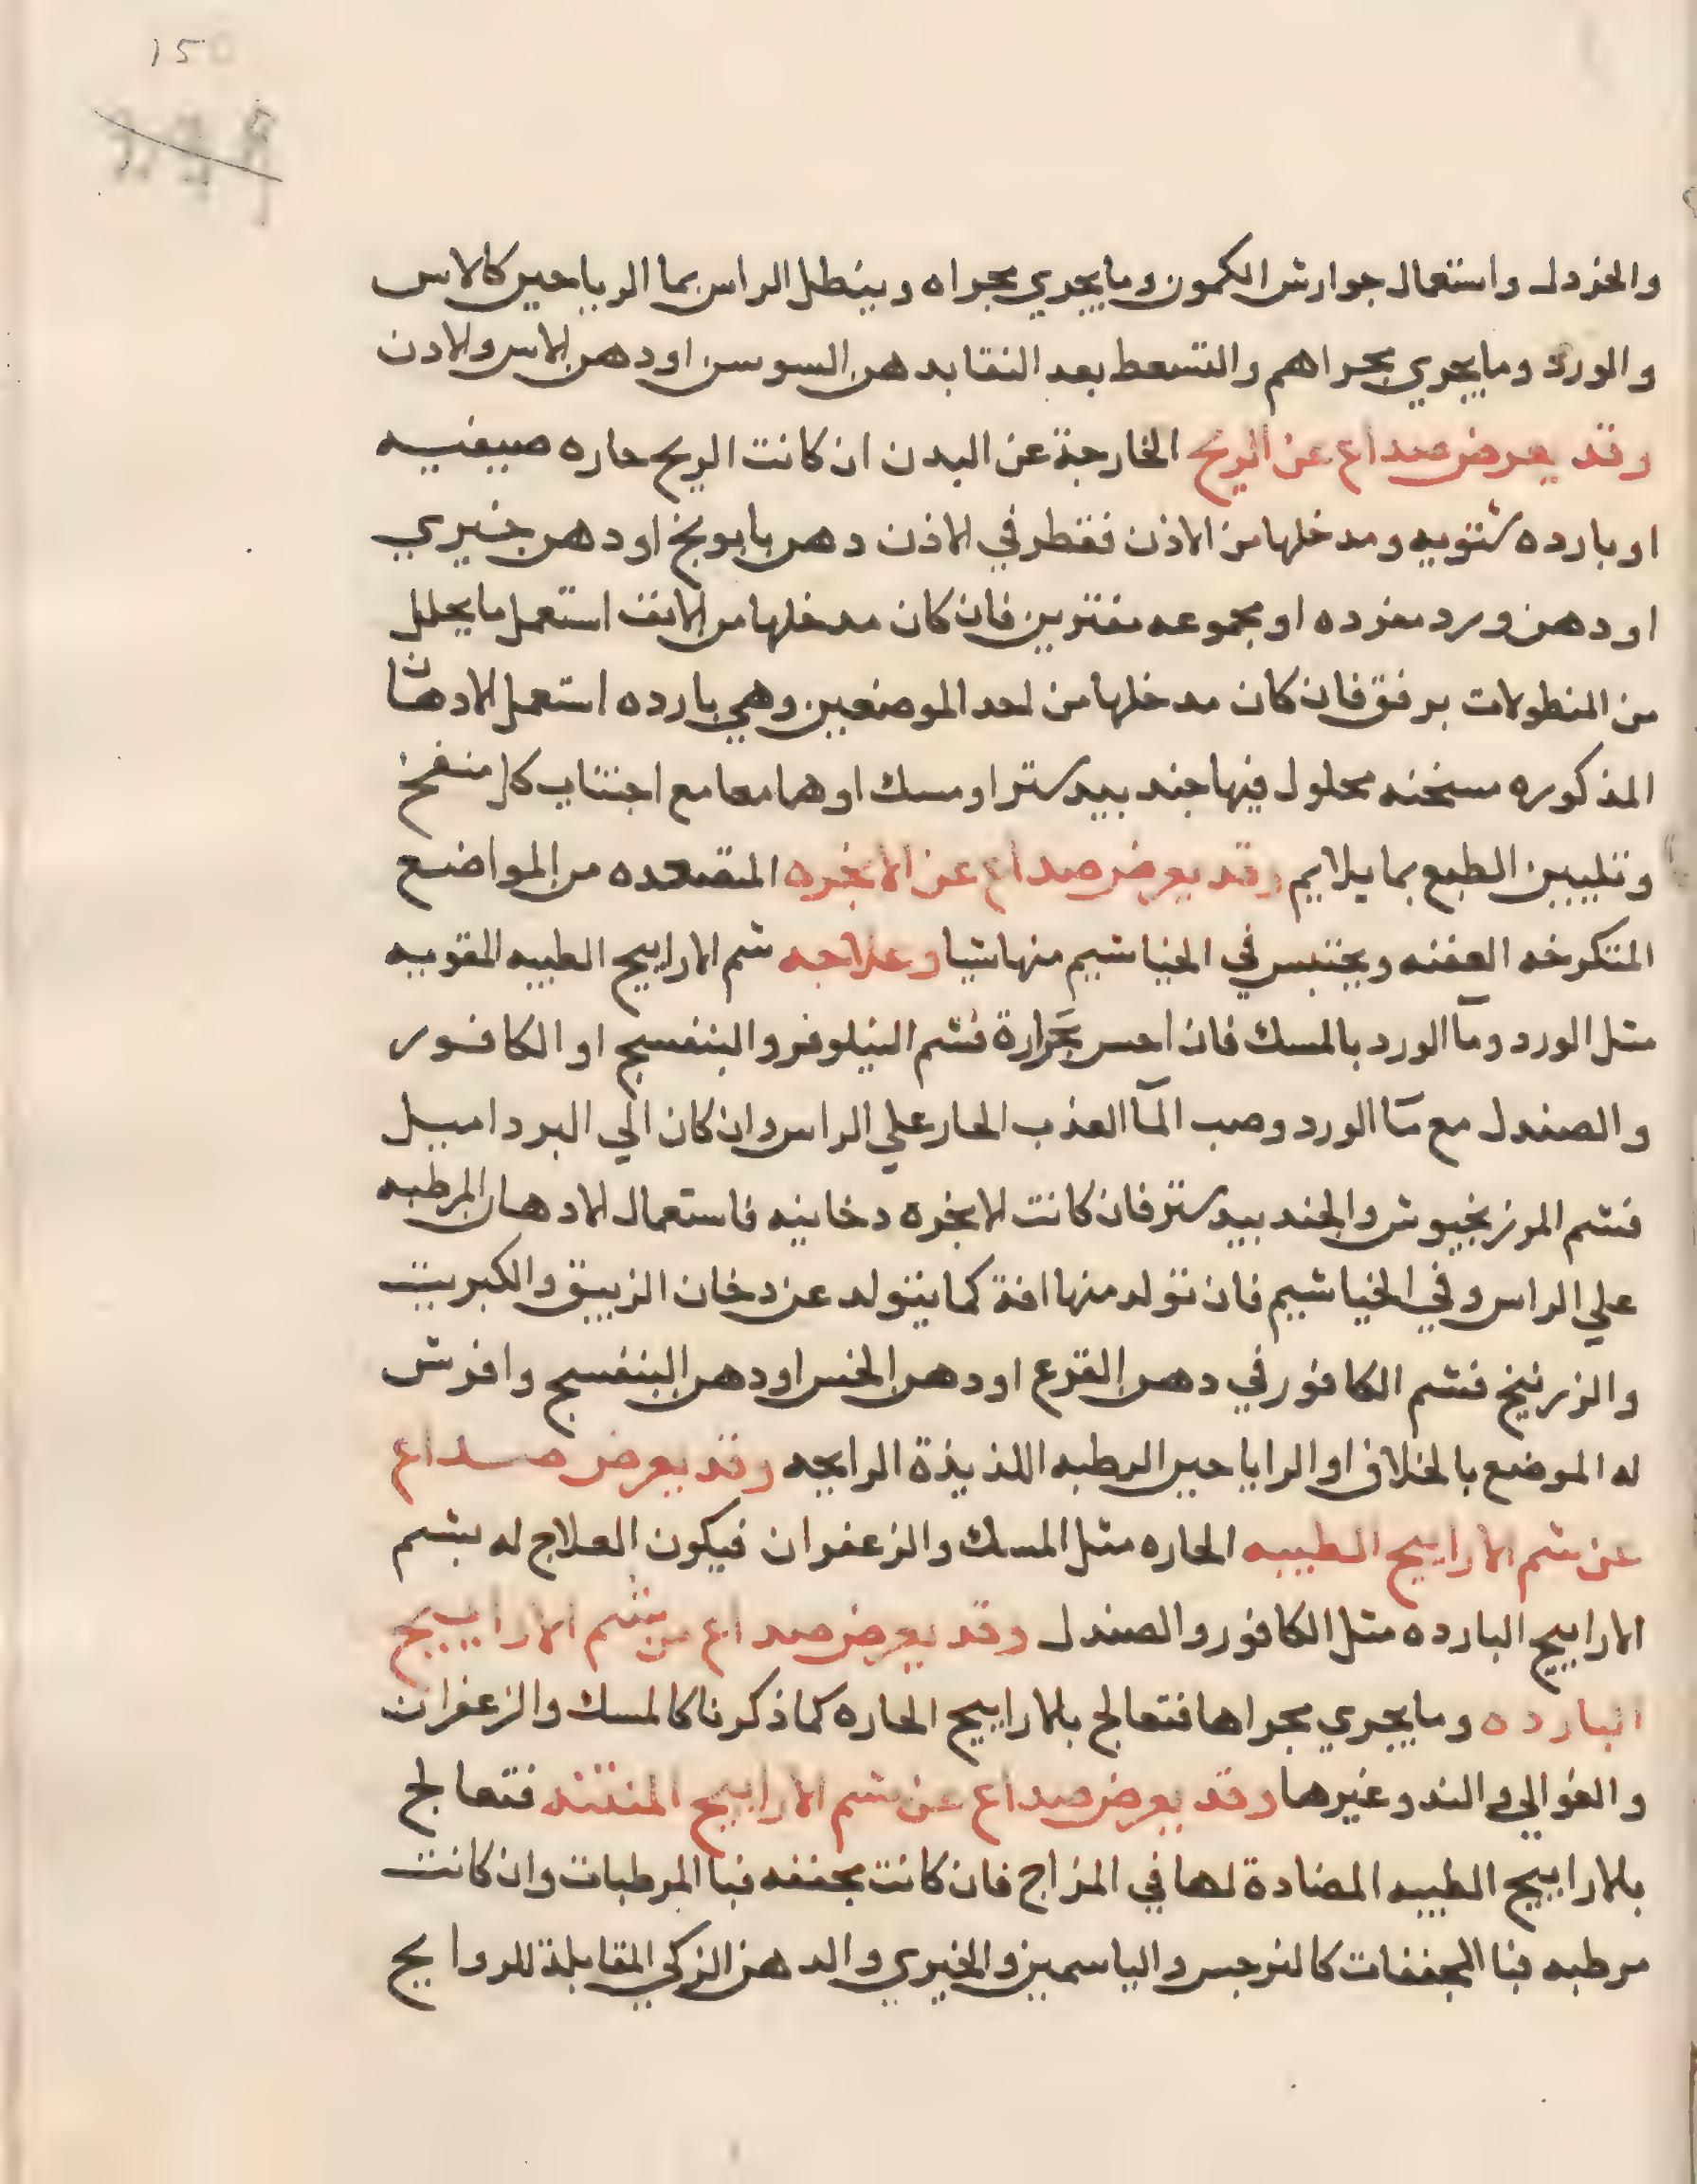 150
والخردل واستعمال جوارش الكمون وما يجري مجراه وينطل الراس بما الرياحين كالاس
والورد وما يجري مجراهم والتسعط بعد النقا بدهن السوسن او دهن الاس والادن
وقد يعرض صداع عن الريح الخارجة عن البدن ان كانت الريح حاره صيفيه
او بارده شتويه ومدخلها من الاذن فقطر في الاذن دهن بابونج او دهن خيري
او دهن ورد مفرده او مجموعه مفترين فان كان مدخلها من الانف استعمل ما يحلل
من النطولات برفق فان كان مدخلها من احد الموضعين وهي بارده استعمل الادهان
المذكوره مسخنه محلول فيها جند بيدستر او مسك او هما معا مع اجتناب كل منفخ
وتليين الطبع بما يلايم وقد يعرض صداع عن الابخره المتصعده من المواضع
المتكرخه العفنه ويحتبس في الخياشيم منها شيا وعلاجه شم الاراييح الطيبه المقويه
مثل الورد ومآ الورد بالمسك فان احس بحرارة فشم النيلوفر والبنفسج او الكافور
والصندل مع مآ الورد وصب المآ العذب الحار علي الراس وان كان الي البرد اميل
فشم المرزنجيوش والجند بيدستر فان كانت الابخره دخانيه فاستعمال الادهان المرطبه
علي الراس وفي الخياشيم فان تولد منها افة كما يتولد عن دخان الزيبق والكبريت
والزرنيخ فشم الكافور في دهن القرع او دهن الخس او دهن البنفسج وافرش
له الموضع بالخلاف او الراياحين الرطبه اللذيذة الرايحه وقد يعرض صداع
عن شم الاراييح الطيبه الحاره مثل المسك والزعفران فيكون العلاج له بشم
الاراييح البارده مثل الكافور والصندل وقد يعرض صداع من شم الاراييح
البارده وما يجري مجراها فتعالج بالاراييح الحاره كما ذكرنا كالمسك والزعفران
والغوالي والند وغيرها وقد يعرض صداع عن شم الاراييح المنتنه فتعالج
بالاراييح الطيبه المضادة لها في المزاج فان كانت مجففه فبا المرطبات وان كانت
مرطبه فبا المجففات كالنرجس والياسمين والخيري والدهن الزكي المقابلة للروايح